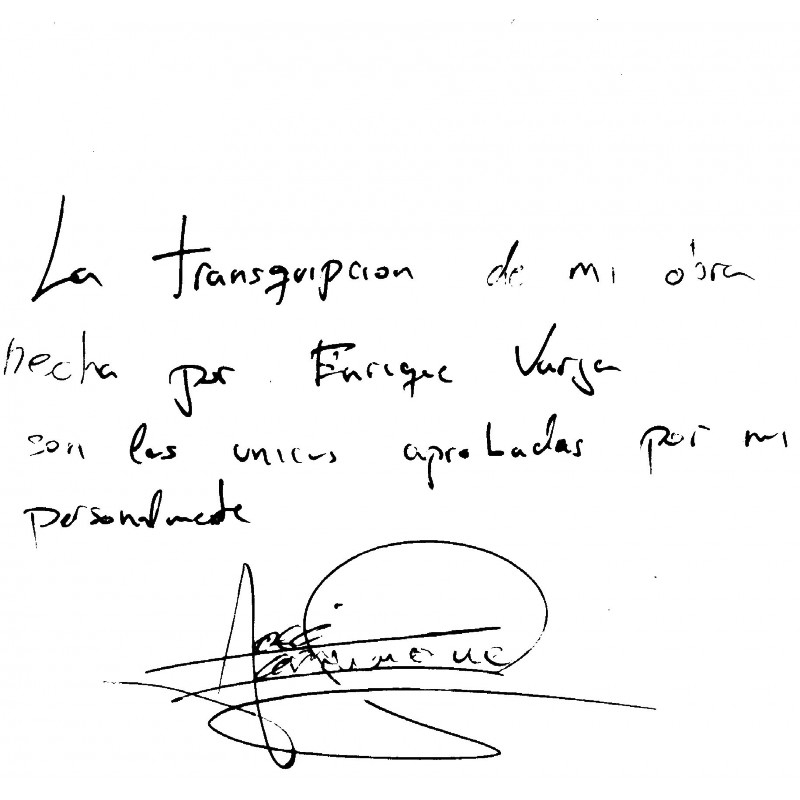 La transquipcion de mi obra
hecha por Enrique Vargas
son las unicas aprobadas por mi
personalmente
José